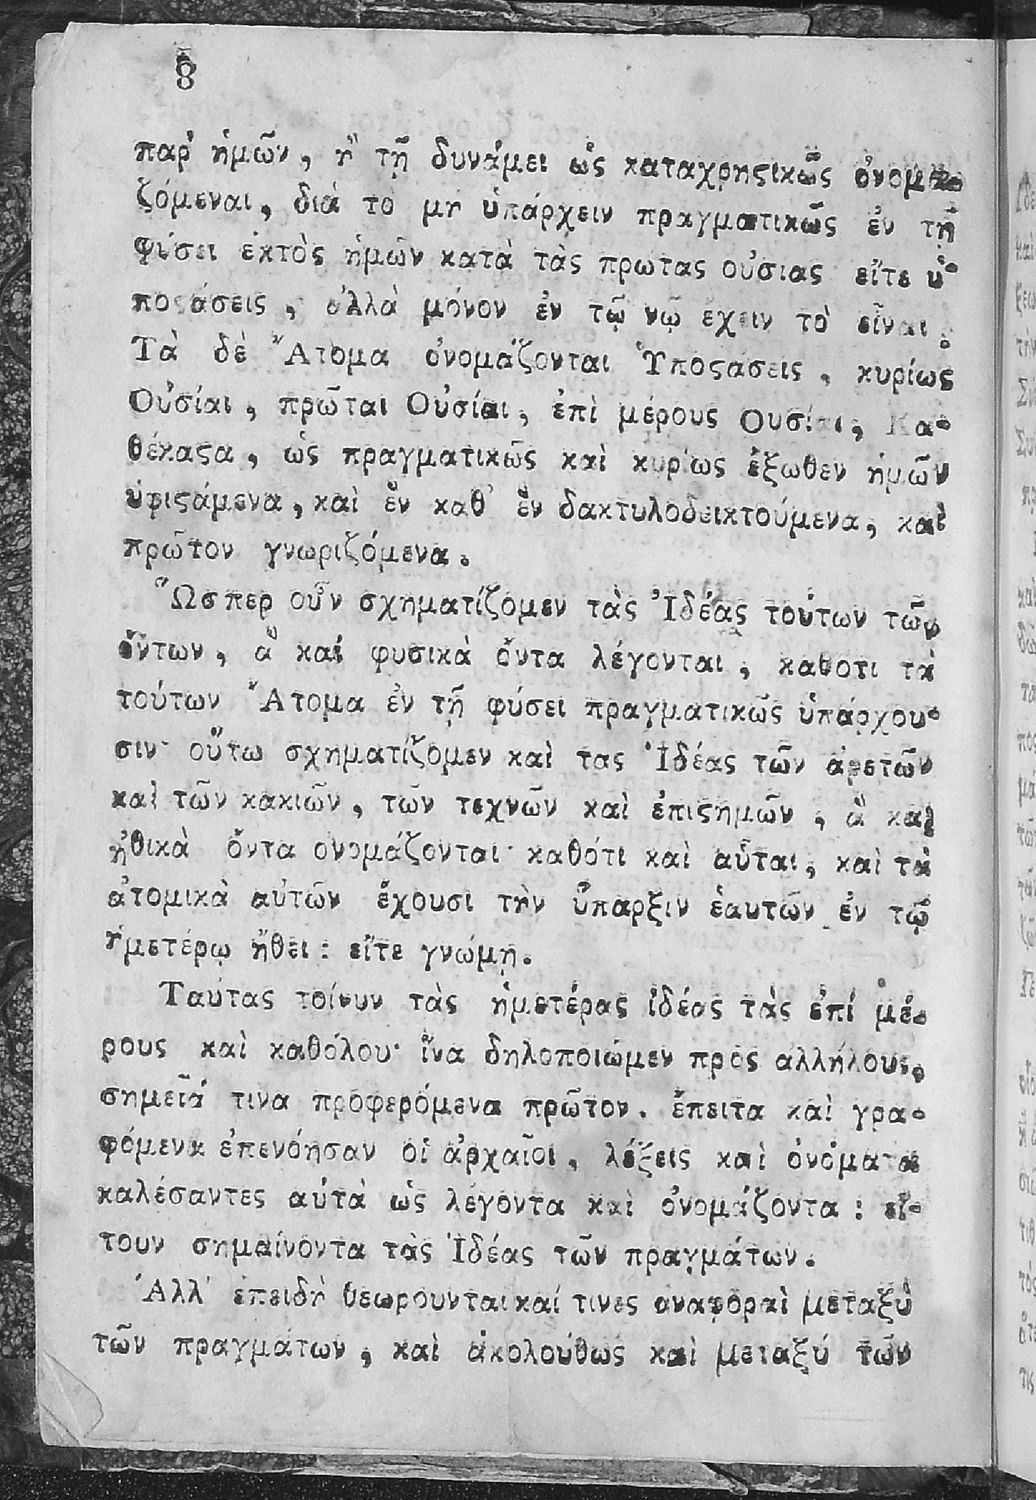 8
παρ' ἡμῶν, ἢ τῇ δυνάμει ὡς καταχρηϛικῶς ὀνομα-
ζόμεναι, διὰ τὸ μὴ ὑπάρχειν πραγματικῶς ἐν τῇ
φύσει ἐκτὸς ἡμῶν κατὰ τὰς πρώτας οὐσίας εἴτε ὑ-
ποϛάσεις, ἀλλὰ μόνον ἐν τῷ νῷ ἔχειν τὸ εἶναι.
Τὰ δὲ Ἄτομα ὀνομάζονται Ὑποϛάσεις, κυρίως
Οὐσίαι, πρῶται Οὐσίαι, ἐπὶ μέρους Οὐσίαι, Κα-
θέκαϛα, ὡς πραγματικῶς καὶ κυρίως ἔξωθεν ἡμῶν
ὑφιϛάμενα, καὶ ἓν καθ' ἓν δακτυλοδεικτούμενα, καὶ
πρῶτον γνωριζόμενα.
Ὥσπερ οὖν σχηματίζομεν τὰς Ἰδέας τούτων τῶν
ὄντων, ἃ καὶ φυσικὰ ὄντα λέγονται, καθότι τὰ
τούτων Ἄτομα ἐν τῇ φύσει πραγματικῶς ὑπάρχου-
σιν· οὕτω σχηματίζομεν καὶ τὰς Ἰδέας τῶν ἀρετῶν
καὶ τῶν κακιῶν, τῶν τεχνῶν καὶ ἐπιϛημῶν, ἃ καὶ
ἠθικὰ ὄντα ὀνομάζονται· καθότι καὶ αὗται, καὶ τὰ
ἀτομικὰ αὐτῶν ἔχουσι τὴν ὕπαρξιν ἑαυτῶν ἐν τῷ
ἡμετέρῳ ἤθει: εἴτε γνώμῃ.
Ταύτας τοίνυν τὰς ἡμετέρας ἰδέας τὰς ἐπὶ μέ-
ρους καὶ καθόλου· ἵνα δηλοποιώμεν πρὸς ἀλλήλους,
σημεῖά τινα προφερόμενα πρῶτον. ἔπειτα καὶ γρα-
φόμενα ἐπενόησαν οἱ ἀρχαῖοι, λέξεις καὶ ὀνόματα
καλέσαντες αὐτὰ ὡς λέγοντα καὶ ὀνομάζοντα: εἴ-
τουν σημαίνοντα τὰς Ἰδέας τῶν πραγμάτων.
Ἀλλ' ἐπειδὴ θεωρούνται καί τινες ἀναφοραὶ μεταξὺ
τῶν πραγμάτων, καὶ ἀκολούθως καὶ μεταξύ τῶν